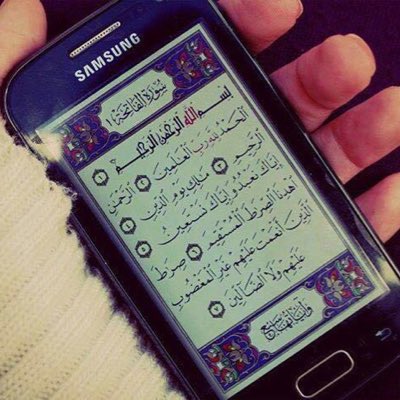 SAMSUNG
سُورَةُ الفَاتِحَةِ ١
بِسْمِ اللهِ الرَّحْمٰنِ الرَّحِيمِ ١
الْحَمْدُ لِلّٰهِ رَبِّ الْعَالَمِينَ ٢ الرَّحْمٰنِ
الرَّحِيمِ ٣ مَالِكِ يَوْمِ الدِّينِ ٤
إِيَّاكَ نَعْبُدُ وَإِيَّاكَ نَسْتَعِينُ ٥
اهْدِنَا الصِّرَاطَ الْمُسْتَقِيمَ ٦ صِرَاطَ
الَّذِينَ أَنْعَمْتَ عَلَيْهِمْ غَيْرِ الْمَغْضُوبِ
عَلَيْهِمْ وَلَا الضَّالِّينَ ٧
وَآيَاتُهَا سَبْعٌ